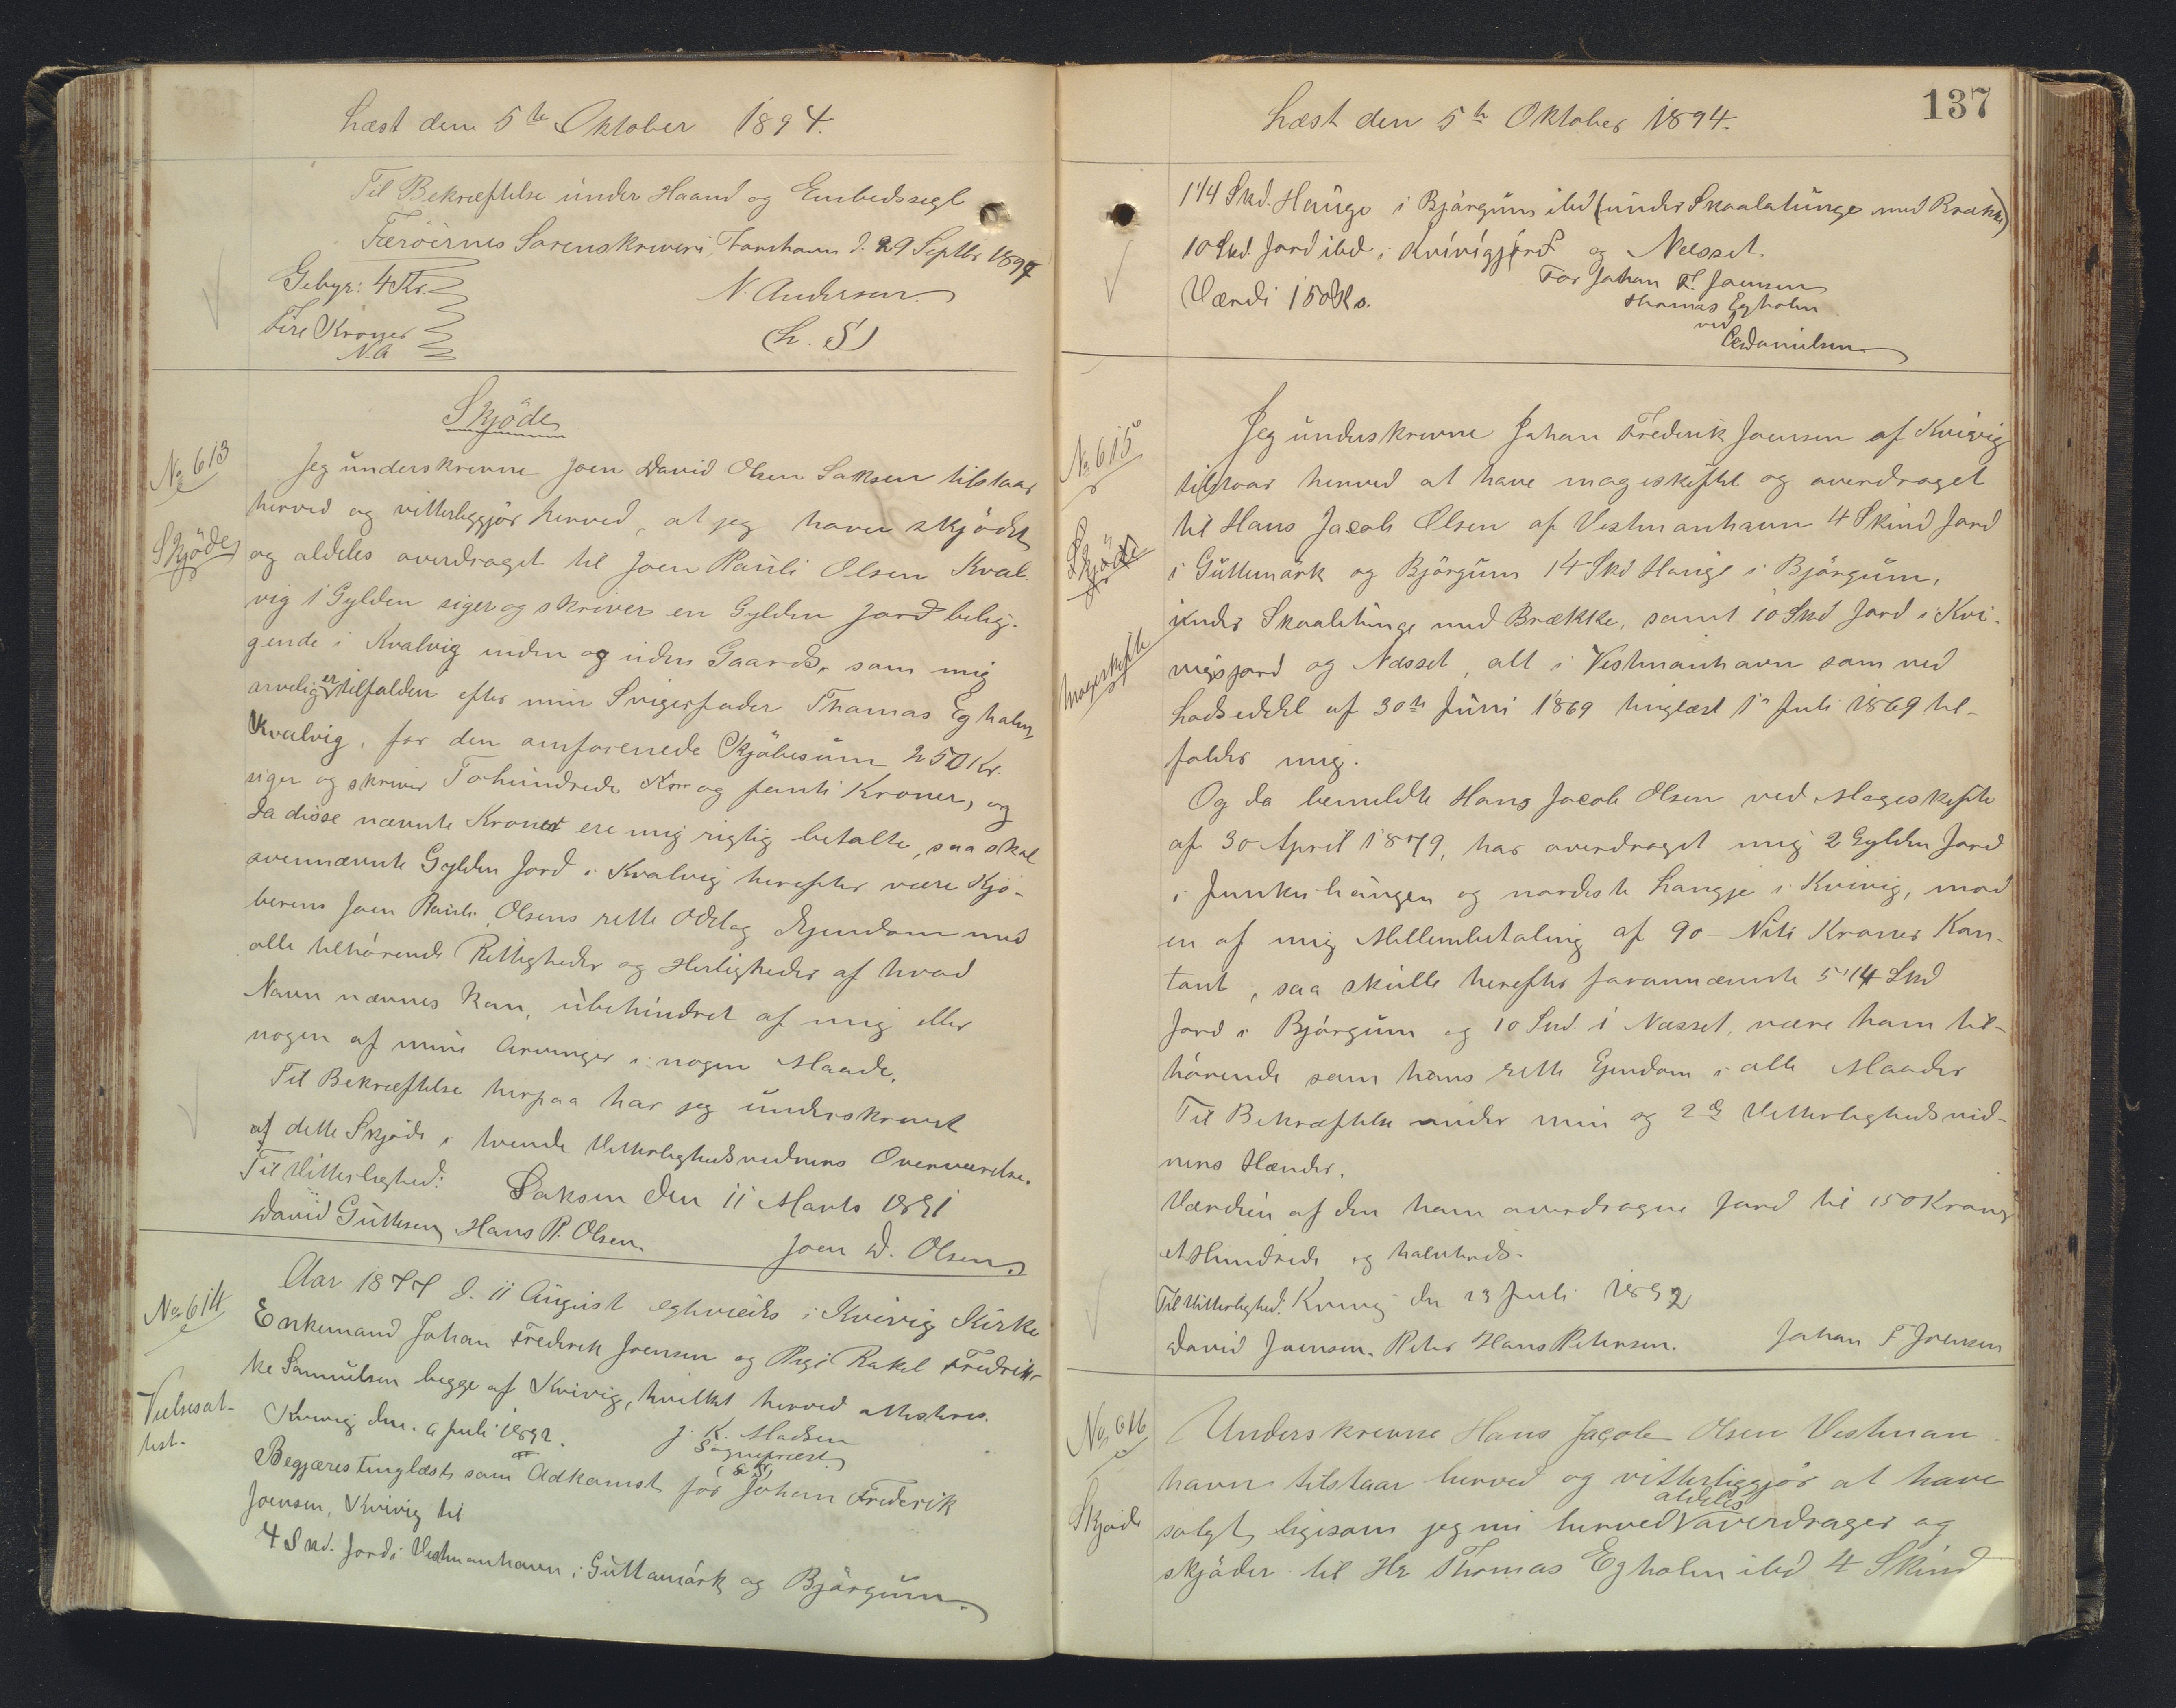 Læst den 5te Oktober 1894.
Til Bekræftelse under Haand og Embedssegl
Færöernes Sorenskriveri, Torshavn d. 29 Septbr 1894
Gebyr: 4 Kr.
N. Andersen.
Fire Kroner
N.A
(L. S)
Skjöde
No 613
Skjöde
Jeg underskrevne Joen David Olsen Saksen tilstaar
herved og vitterliggjör herved, at jeg haver skjödet
og aldeles overdraget til Joen Pauli Olsen Kval-
vig 1 Gylden siger og skriver en Gylden Jord belig-
gende i Kvalvig inden og uden Gaards, som mig
arvelig er tilfalden efter min Svigerfader Thomas Egholm,
Kvalvig, for den omforenede Kjöbesum 250 Kr.
siger og skriver Tohundrede Kr og femti Kroner, og
da disse nævnte Kroner ere mig rigtig betalte, saa skal
ovennævnte Gylden Jord i Kvalvig herefter være Kjö-
berens Joen Pauli Olsens rette Odel og Ejendom med
alle tilhörende Rettigheder og Herligheder af hvad
Navn nævnes kan, ubehindret af mig eller
nogen af mine Arvinger i nogen Maade.
Til Bekræftelse herpaa har jeg underskrevet
af dette Skjöde i tvende Vitterlighedsvidners Overværelse.
Til Vitterlighed: Saksen den 11 Marts 1891
David Guttesen Hans P. Olsen.
Joen D. Olsen.
No 614
Vielsesat-
test.
Aar 1877 d. 11 August egtviedes i Kvivig Kirke
Enkemand Johan Frederik Joensen og Pige Rakel Fredrik-
ke Samuelsen begge af Kvivig, hvilket herved attesteres.
Kvivig den. 9 Juli 1892.
J. K. Madsen
Sognepræst
Begjæres tinglæst som Adkomst for Johan Frederik
Joensen, Kvivig til
4 Skd. Jord i Vestmanhavn, i Guttamörk og Björgum.
Læst den 5te Oktober 1894.
137
1 1/4 Skd. Hauge i Björgum ibd (under Skaalatunge med Brække)
10 Skd. Jord ibd. i Kvivigjörd og Nesset.
For Johan F. Joensen
Værdi 150 Kr.
Thomas Egholm
ved
Danielsen
No 615
Skjöde
Mageskifte
Jeg underskrevne Johan Frederik Joensen af Kvivig
tilstaar herved at have mageskiftet og overdraget
til Hans Jacob Olsen af Vestmanhavn 4 Skind Jord
i Guttemörk og Björgum 1 1/4 Skd Hauge i Björgum,
under Skaaletunge med Brække, samt 10 Skd Jord i Kvi-
vigsjord og Næsset, alt i Vestmanhavn som ved
Lodseddel af 30te Juni 1869 tinglæst 1te Juli 1869 til-
falder mig.
Og da bemeldte Hans Jacob Olsen ved Mageskifte
af 30 April 1879, har overdraget mig 2 Gylden Jord
i Junkushaugen og nordeste Langje i Kvivig, mod
en af mig Mellembetaling af 90 - Niti Kroner Kon-
tant, saa skulle herefter forannævnte 5 1/4 Skd
Jord i Björgum og 10 Skd. i Næsset, være ham til-
hörende som hans rette Ejendom i alle Maader
Til Bekræftelse under min og 2de Vitterlighedsvid-
ners Hænder.
Værdien af den ham overdragne Jord til 150 Kroner
et Hundrede og halvtreds.
Til Vitterlighed. Kvivig den 13 Juli 1892
David Joensen. Peter Hans Petersen.
Johan F Joensen
No 616
Skjöde
Underskrevne Hans Jacob Olsen Vestman-
havn tilstaar herved og vitterliggjör at have
solgt, ligesom jeg nu herved aldeles overdrager og
skjöder til Hr Thomas Egholm ibd 4 Skind